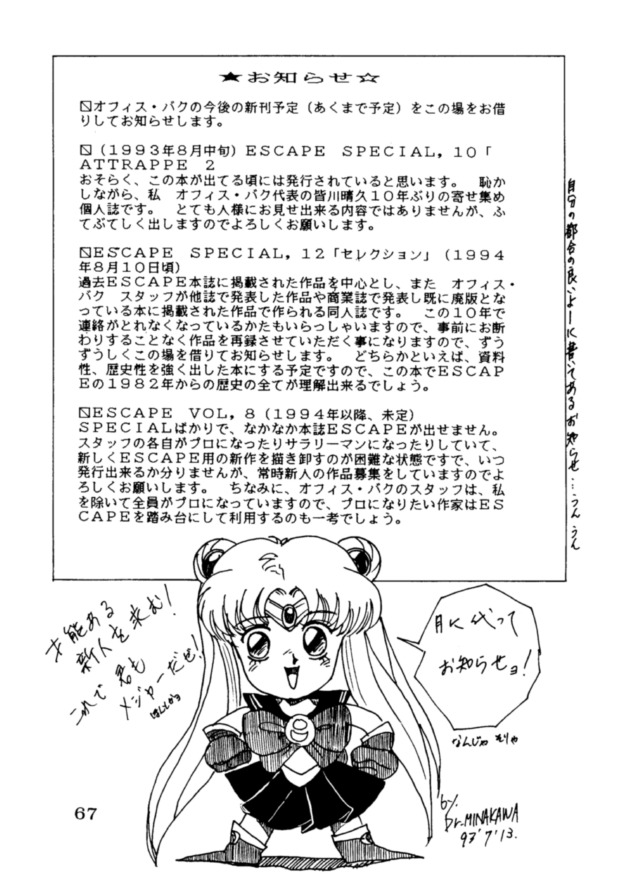 ★お知らせ☆
〼オフィス・バクの今後の新刊予定（あくまで予定）をこの場をお借
りしてお知らせします。
〼（1993年8月中旬）ESCAPE SPECIAL，10「
ATTRAPPE 2
おそらく、この本が出てる頃には発行されていると思います。 恥か
しながら、私 オフィス・バク代表の皆川晴久10年ぶりの寄せ集め
個人誌です。 とても人様にお見せ出来る内容ではありませんが、ふ
てぶてしく出しますのでよろしくお願いします。
〼ESCAPE SPECIAL，12「セレクション」（1994
年8月10日頃）
過去ESCAPE本誌に掲載された作品を中心とし、また オフィス・
バク スタッフが他誌で発表した作品や商業誌で発表し既に廃版とな
っている本に掲載された作品で作られる同人誌です。 この10年で
連絡がとれなくなっているかたもいらっしゃいますので、事前にお断
わりすることなく作品を再録させていただく事になりますので、ずう
ずうしくこの場を借りてお知らせします。 どちらかといえば、資料
性、歴史性を強く出した本にする予定ですので、この本でESCAP
Eの1982年からの歴史の全てが理解出来るでしょう。
〼ESCAPE VOL，8（1994年以降、未定）
SPECIALばかりで、なかなか本誌ESCAPEが出せません。
スタッフの各自がプロになったりサラリーマンになったりしていて、
新しくESCAPE用の新作を描き卸すのが困難な状態ですで、いつ
発行出来るか分りませんが、常時新人の作品募集をしていますのでよ
ろしくお願いします。 ちなみに、オフィス・バクのスタッフは、私
を除いて全員がプロになっていますので、プロになりたい作家はES
CAPEを踏み台にして利用するのも一考でしょう。
自分の都合の良いよーに書いてあるお知らせ…うんうん
才能ある
新人を求む！
これで 君も
メジャーだぜ！
ほんとかョ
月に代って
お知らせョ！
なんじゃ そりゃ
by.
Dr.MINAKAWA
93'7'13.
67